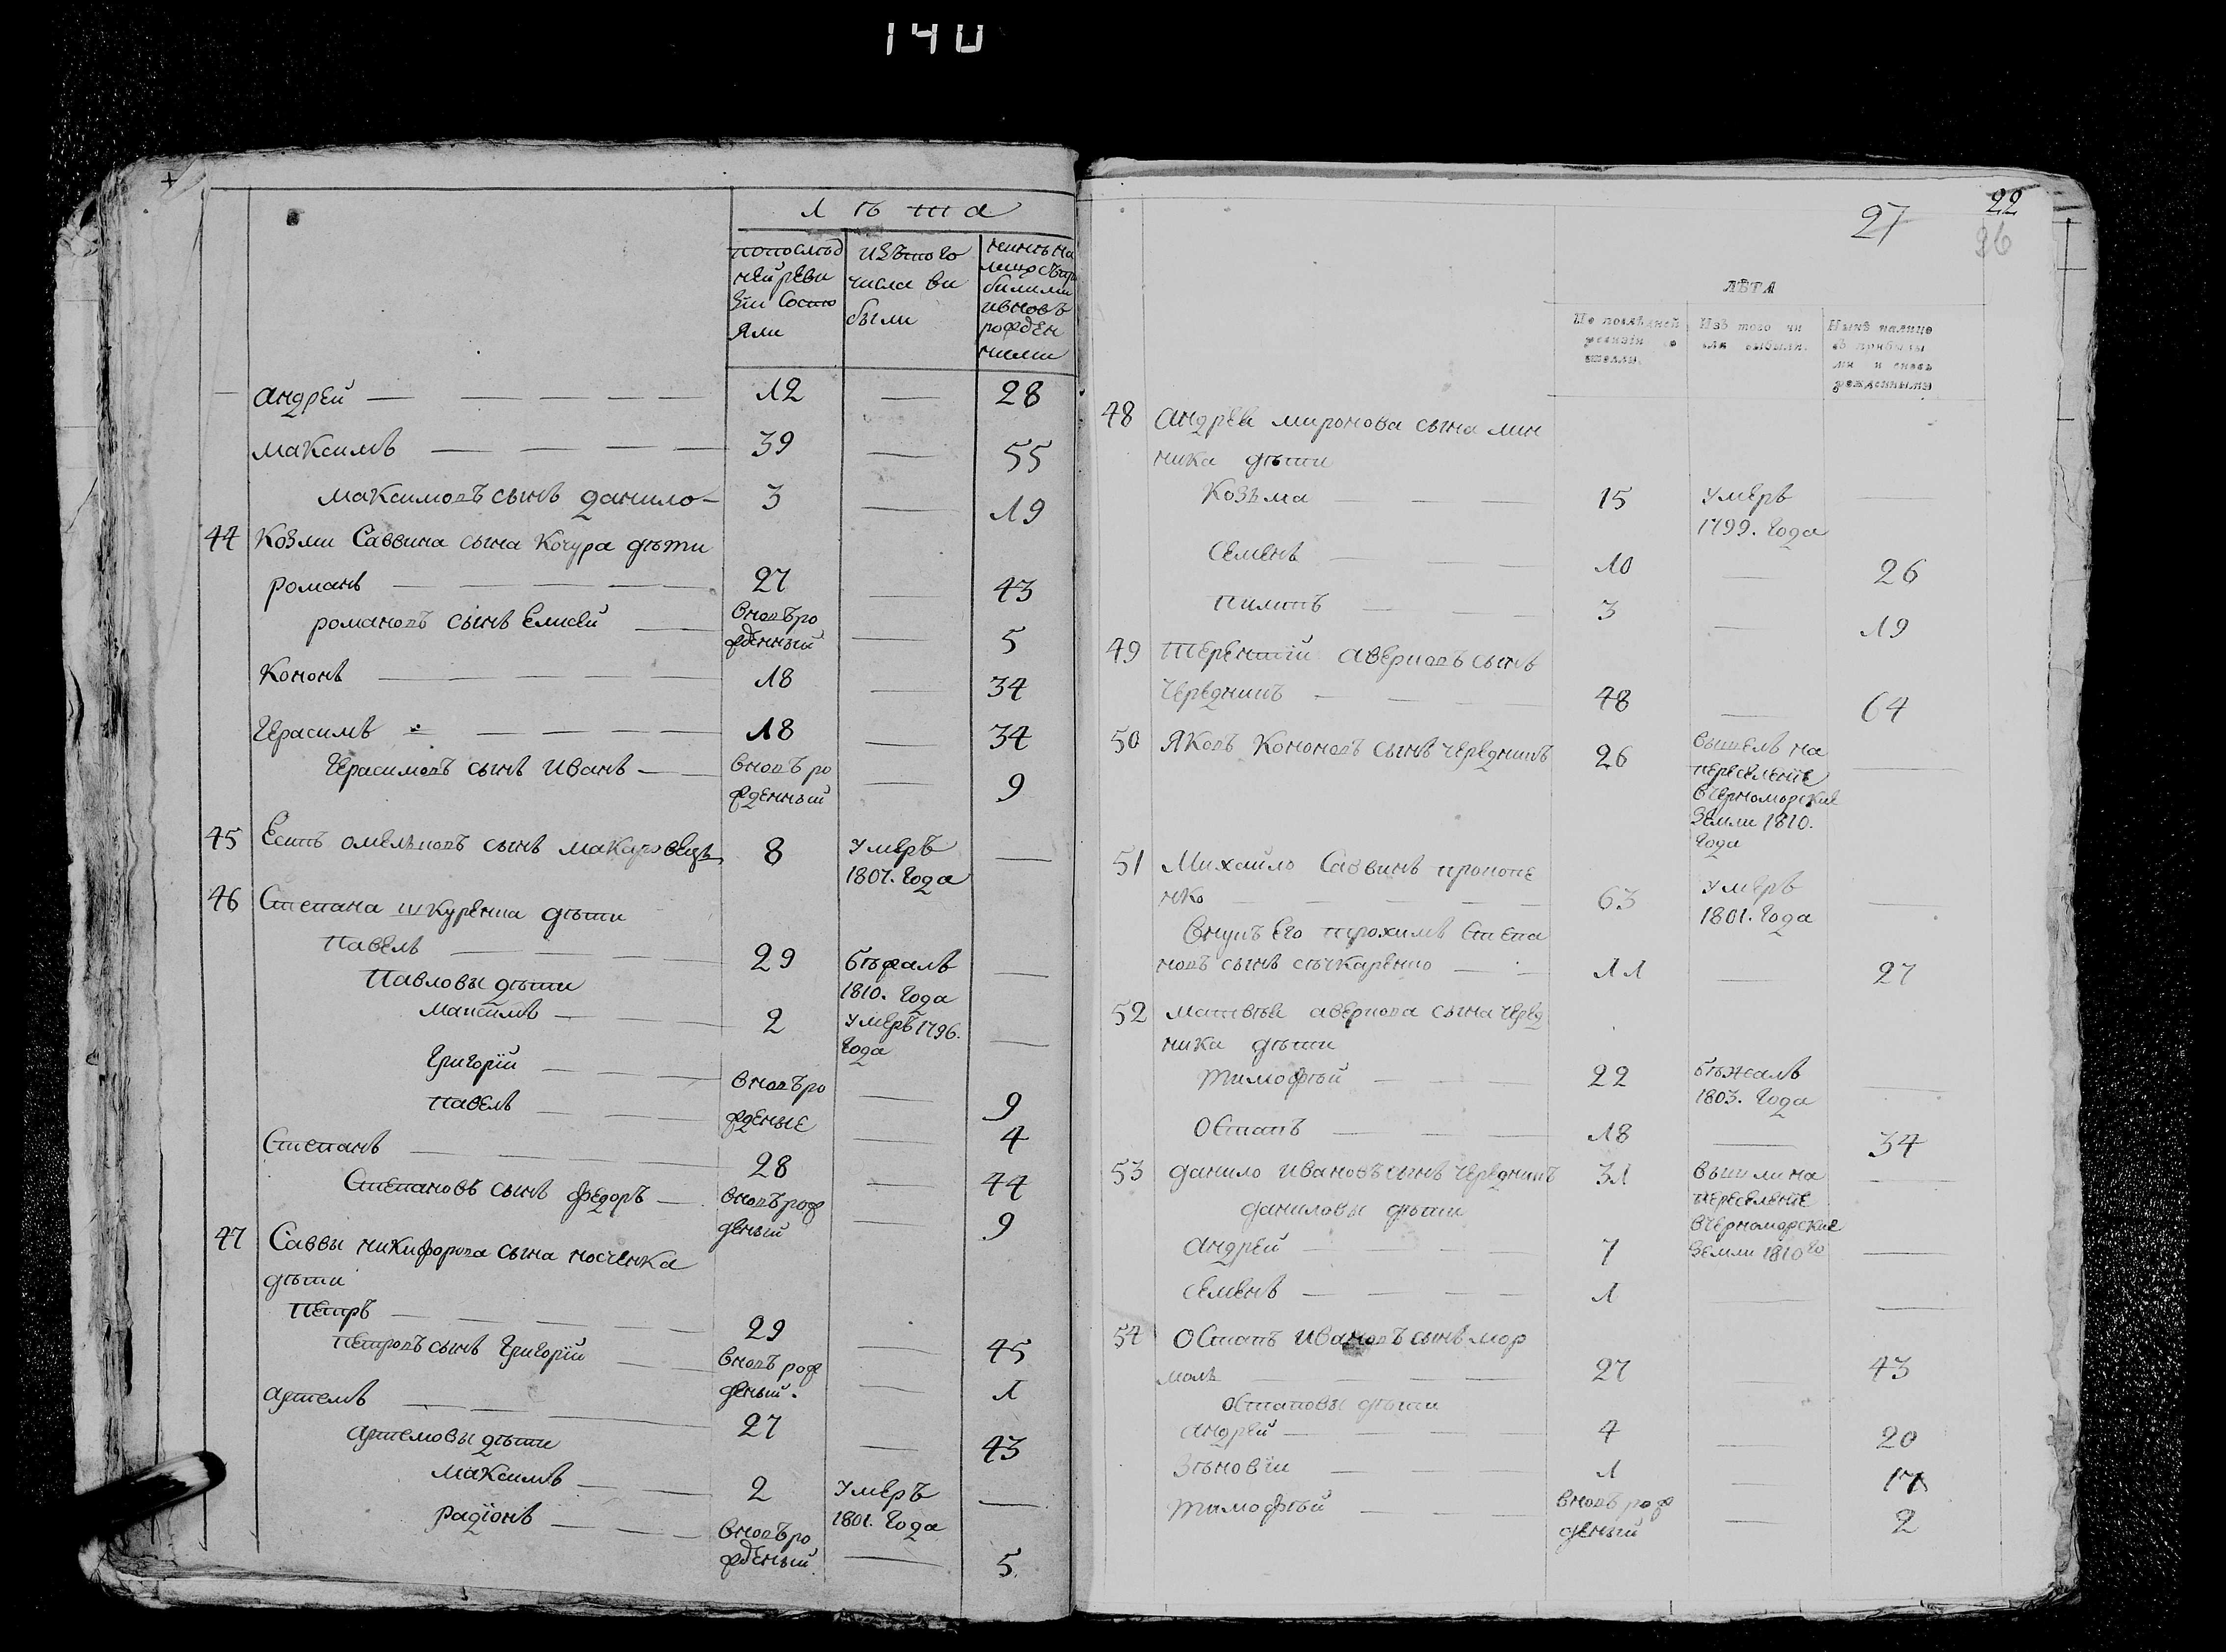 140
Лѣта
попослѣд
ней реви
зіи состо
яли
изътого
числа вы
были
нынѣ на
лицо съпри
былыми
ивновъ
рожден
ными
Андрей — 12 — 28
Максимъ — 39 — 55
Максимовъ сынъ Данило — 3 — 19
44 Козми Саввина сына Кочура дѣти
Романъ — 27 — 43
Романовъ сынъ Елисей — вновъ ро
жденный — 5
Кононъ — 18 — 34
Герасимъ — 18 — 34
Герасимовъ сынъ Иванъ — вновъ ро
жденный — 9
45 Есипъ Омельновъ сынъ Макаровецъ 8 умеръ —
1807. года
46 Степана Шкуренка дѣти
Павелъ — 29 бѣжалъ —
1810. года
Павловы дѣти
Максимъ — 2 умеръ 1796. —
года
Григорій — вновъ ро — 9
Павелъ — жденые — 4
Степанъ — 28 — 44
Степановъ сынъ Федоръ — вновъ рож — 9
деный
47 Саввы Никифорова сына Носченка
дѣти
Петръ — 29 — 45
Петровъ сынъ Григорій — вновъ рож — 1
деный.
Артемъ — 27 — 43
Артемовы дѣти
Максимъ — 2 умеръ —
1801. года
Радіонъ — вновъ ро
жденый. — 5.
27 22
36
ЛѢТА
По послѣдней
ревизіи со
стояли.
Изъ того чи
сла выбыли.
Нынѣ налицо
съ прибылы
ми и вновь
рожденными
48 Андрея Миронова сына Мин
ника дѣти
Козьма — 15 умеръ —
1799. года
Семенъ — 10 — 26
Пилипъ — 3 — 19
49 Терентій Аверковъ сынъ
Чередникъ — 48 — 64
50 Яковъ Кононовъ сынъ Чередникъ 26 вышелъ на —
переселеніе
вЧерноморские
Земли 1810.
года
51 Михайло Саввинъ Прокопе
нко — 63 умеръ —
1801. года
Внукъ его Трохимъ Степа
новъ сынъ Сѣчкаренко — 11 — 27
52 Матвѣя Аверкова сына Черед
ника дѣти
Тимофѣй — 22 бѣжалъ —
1803. года
Остапъ — 18 — 34
53 Данило Ивановъ сынъ Чередникъ 31 вышли на —
переселеніе
Даниловы дѣти вЧерноморские
Андрей — 7 Земли 1810 го —
Семенъ — 1 — —
54 Остапъ Ивановъ сынъ Мор
маль — 27 — 43
Остаповы дѣти
Андрей — 4 — 20
Зѣновіи — 1 — 17
Тимофѣй — вновъ рож — 2
деный